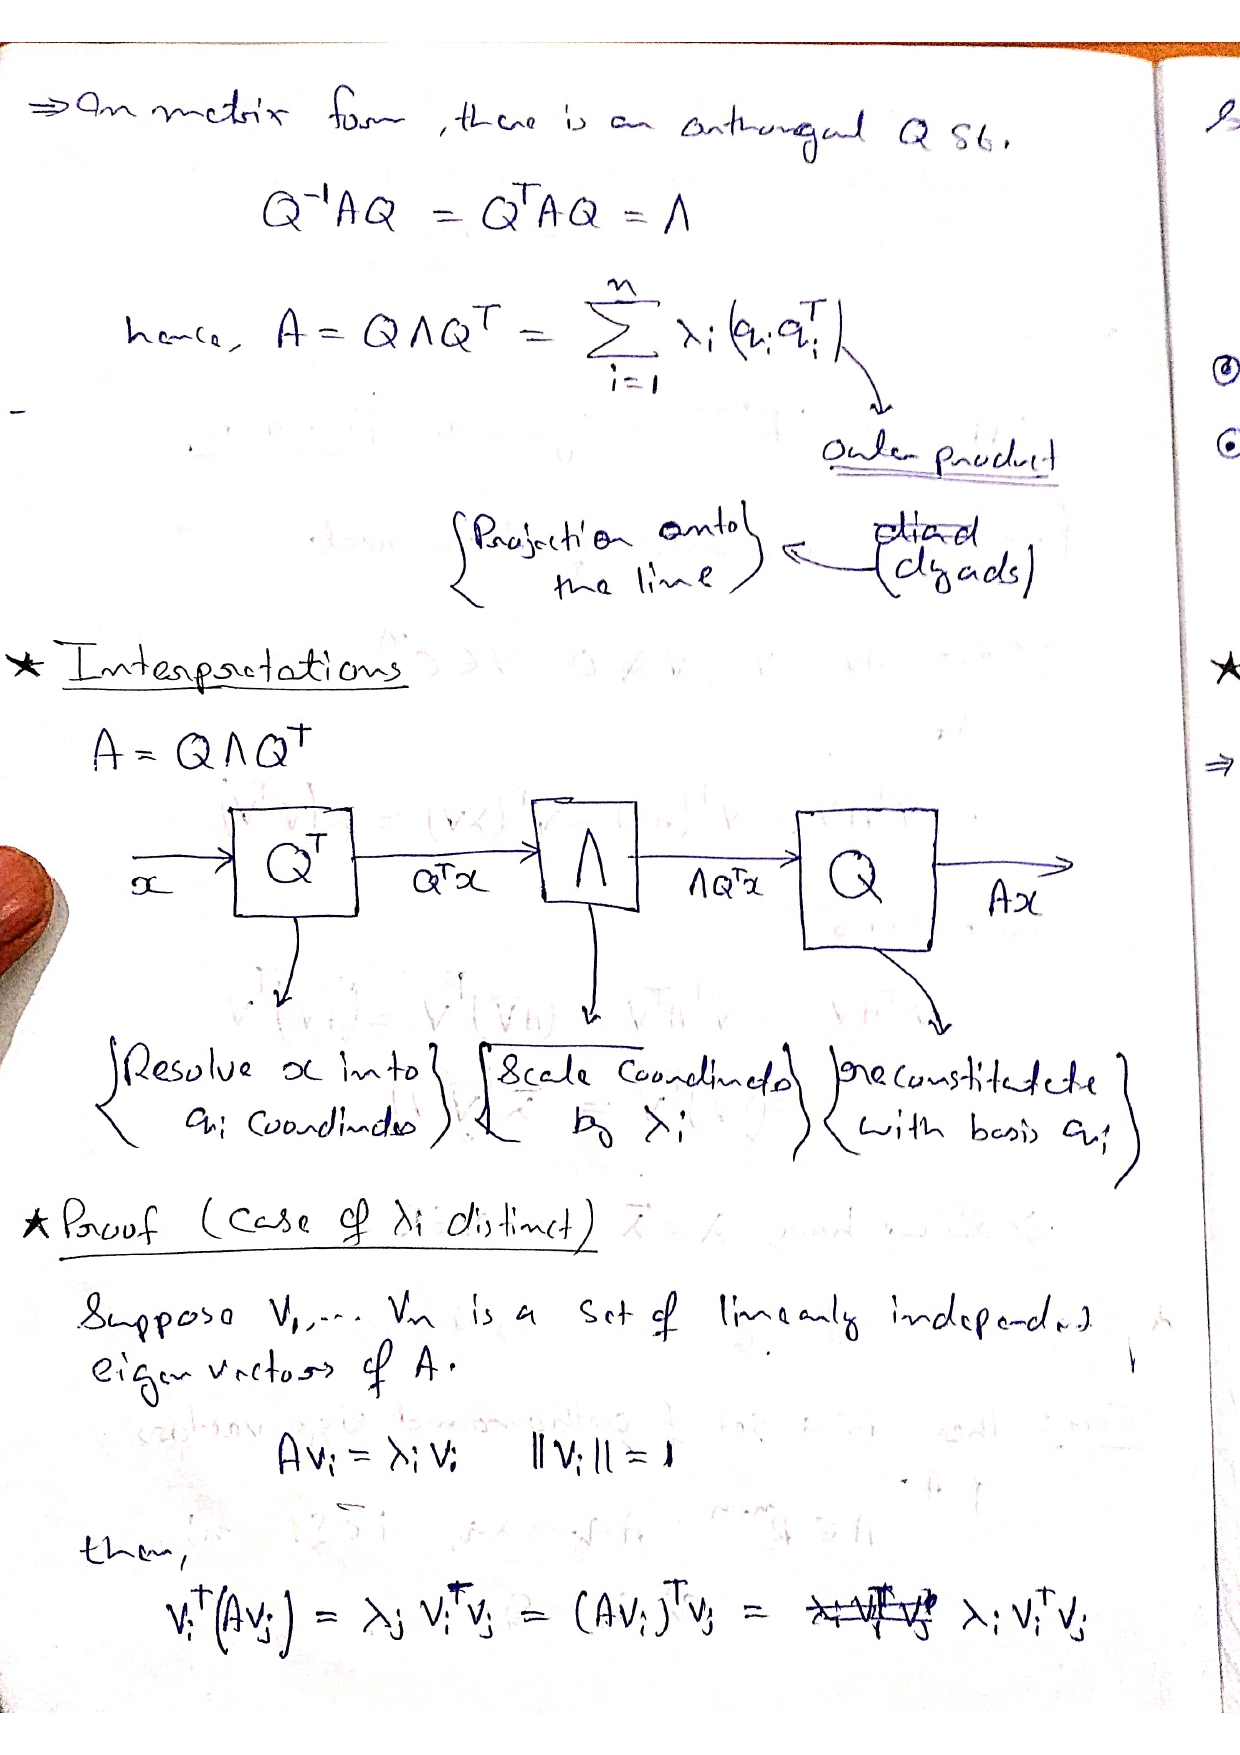 ⇒ In matrix form, there is an orthongal Q st.
Q⁻¹AQ = QᵀAQ = Λ
hence, A = QΛQᵀ = Σ_{i=1}^{n} λᵢ(qᵢqᵢᵀ)
outer product
{Projection onto the line} ← (dyads)
★ Interpretations
A = QΛQᵀ
x → Qᵀ → Qᵀx → Λ → ΛQᵀx → Q → Ax
{Resolve x into qᵢ coordinates} {Scale coordinates by λᵢ} {reconstitutete with basis qᵢ}
★ Proof (case of λᵢ distinct)
Suppose v₁,... vₙ is a set of linearly independent
eigen vectors of A.
Avᵢ = λᵢvᵢ ||vᵢ|| = 1
then,
vᵢᵀ(Avⱼ) = λⱼ vᵢᵀvⱼ = (Avᵢ)ᵀvⱼ = λᵢ vᵢᵀvⱼ